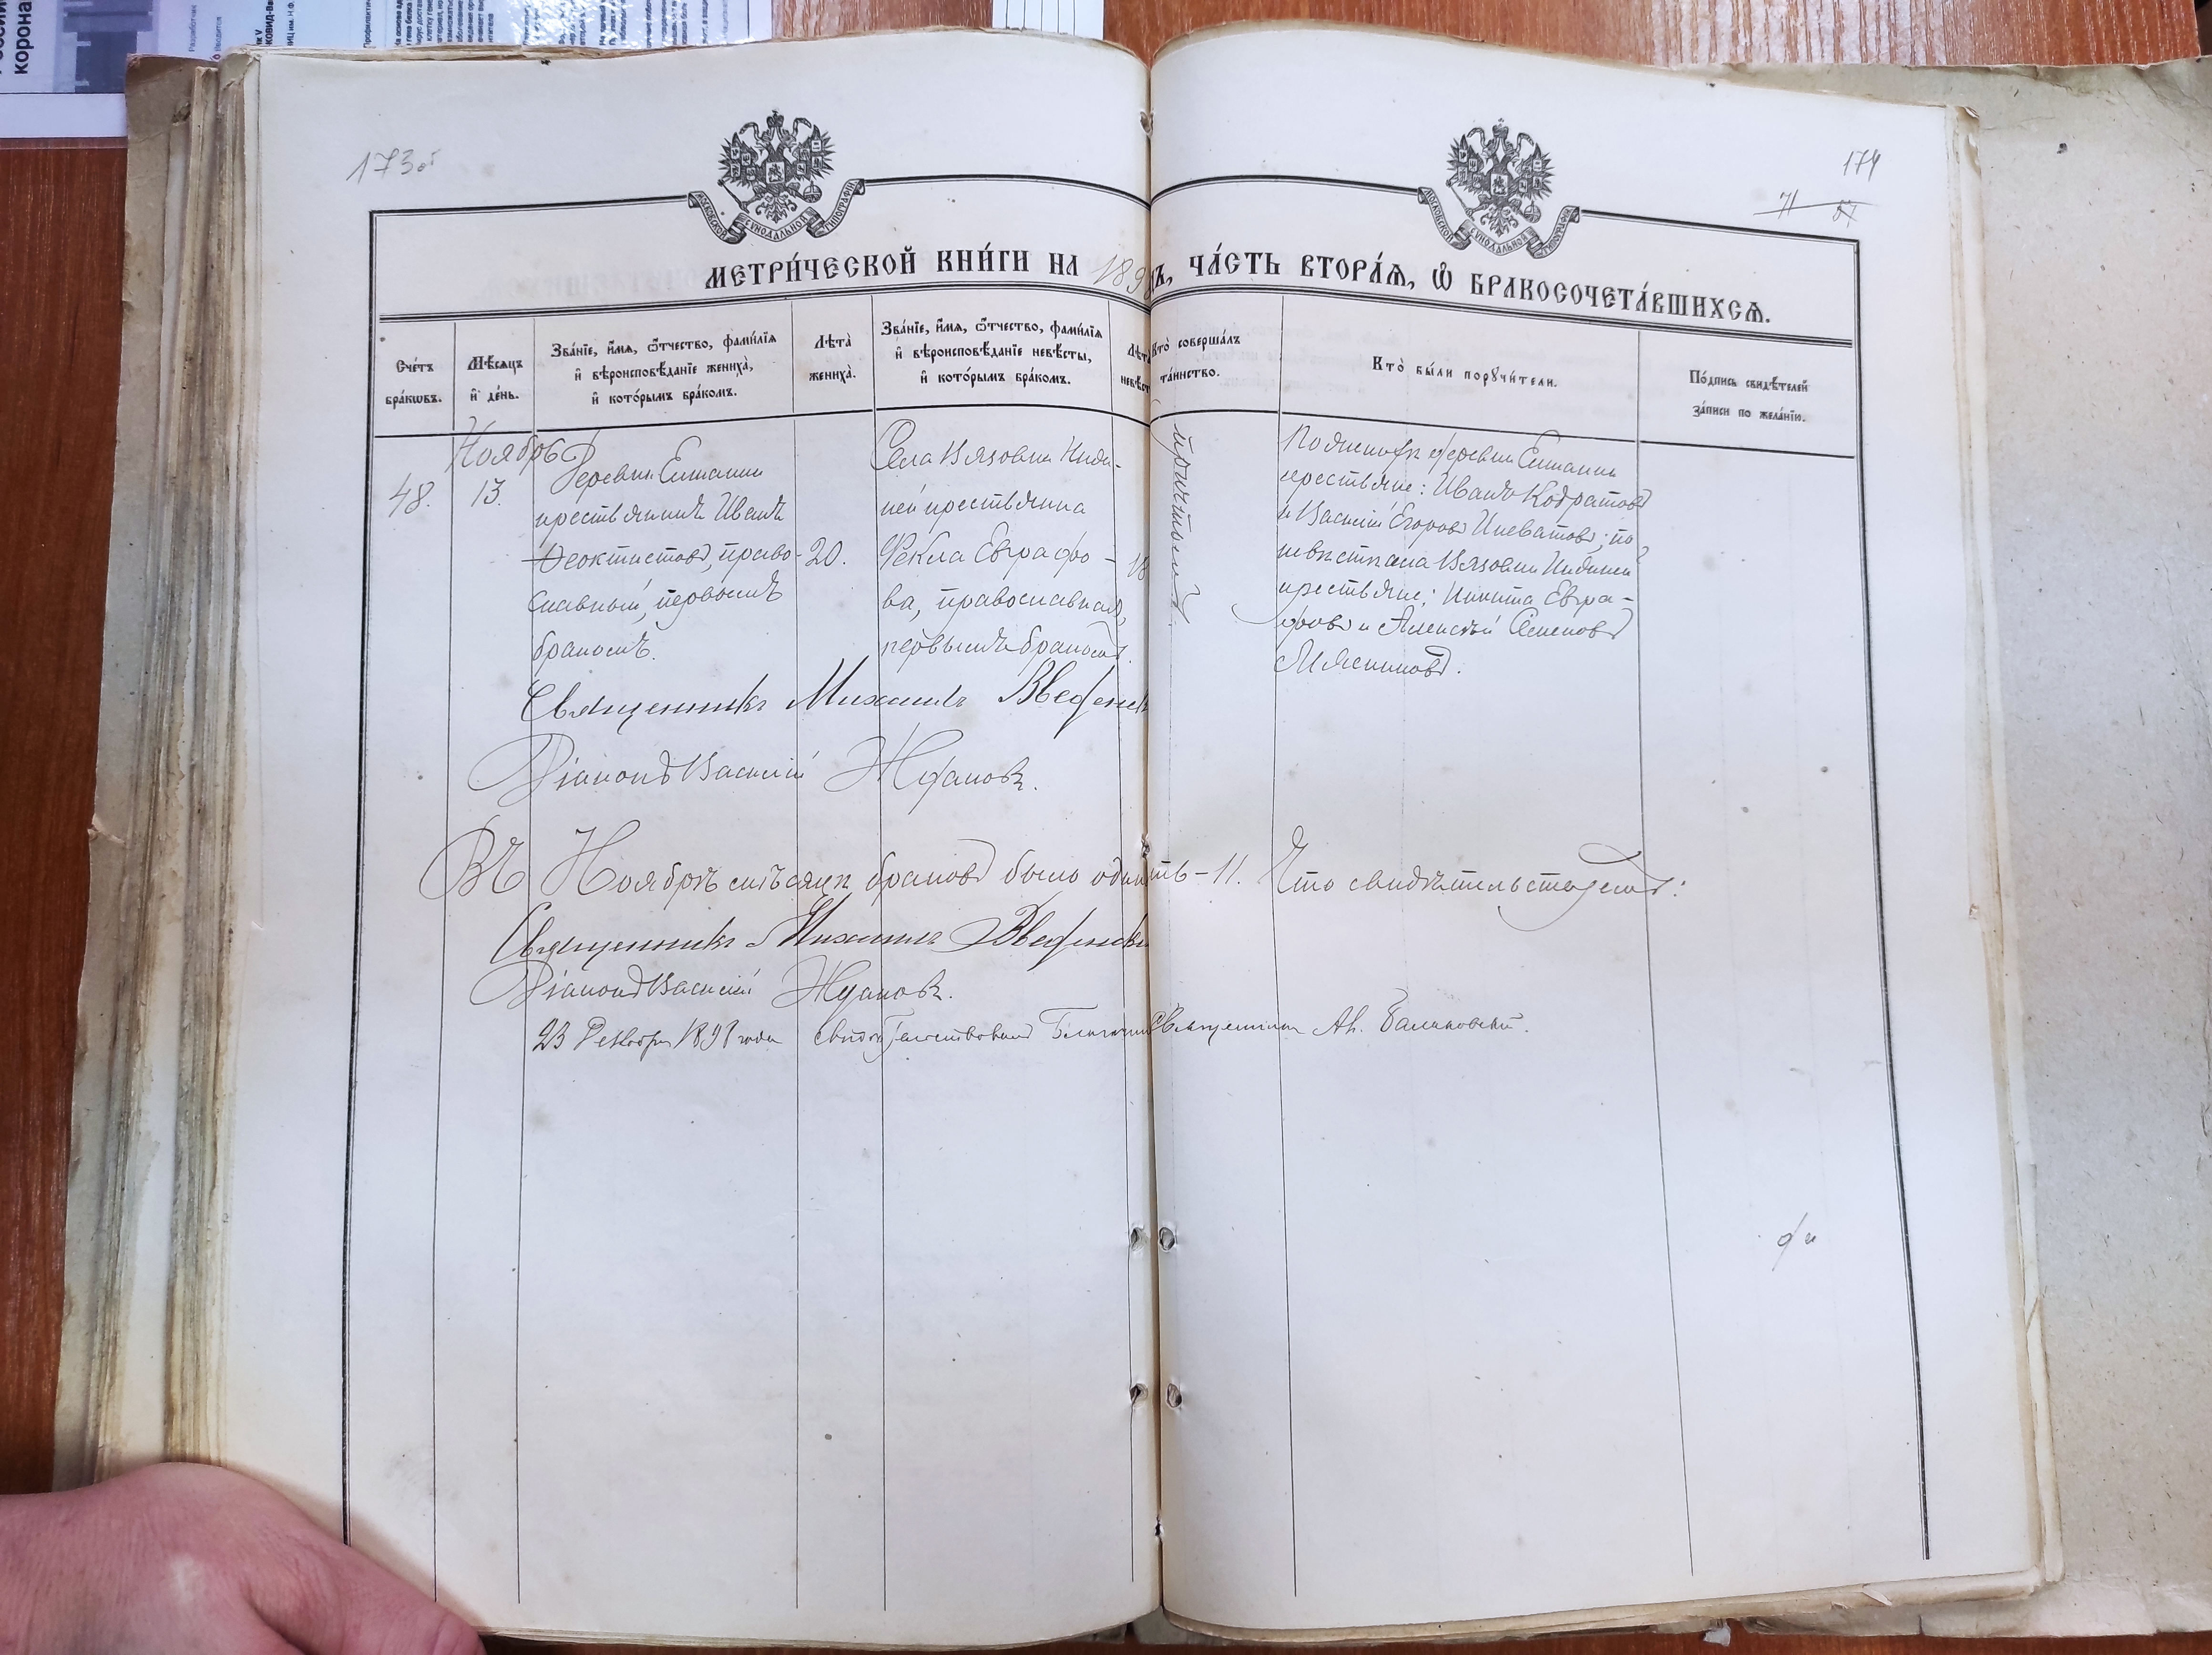 173об
174
71 87
МОСКОВСКОЙ СѴНОДАЛЬНОЙ ТИПОГРАФІИ
МОСКОВСКОЙ СѴНОДАЛЬНОЙ ТИПОГРАФІИ
МЕТРИ́ЧЕСКОЙ КНИ́ГИ НА 189 ЧА́СТЬ ВТОРА́Я, Ѡ҆ БРАКОСОЧЕТА́ВШИХСѦ.
Сче́тъ бра́кѡвъ.
Мѣ́сяцъ и҆ де́нь.
Зва́нїе, и҆́мя, ѻ҆́тчество, фами́лїя и҆ вѣроисповѣ́данїе жениха̀, и҆ кото́рымъ бра́комъ.
Лѣта̀ жениха̀.
Зва́нїе, и҆́мя, ѻ҆́тчество, фами́лїя и҆ вѣроисповѣ́данїе невѣ́сты, и҆ кото́рымъ бра́комъ.
Лѣта невѣст
Кто̀ соверша́лъ та́инство.
Кто̀ бы́ли порꙋчи́тели.
По́дпись свидѣ́телей за́писи по жела́нїю.
Ноябрь
48.
13.
Деревни Елшанки
крестьянинъ Иванъ
Ѳеоктистовъ, право-
славный, первымъ
бракомъ.
20.
Села Вязовки
ней крестьянка
Ѳекла Евграфо-
ва, православная,
первымъ бракомъ.
18
По женихѣ деревни Елшанки
крестьяне: Иванъ Кодратовъ
и Василій Егоровъ Ивеватовъ; по
невѣстѣ села Вязовки
крестьяне: Никита Евгра-
фовъ и Алексѣй Семеновъ
Мясниковъ.
Священникъ Михаилъ Введенск
Діаконъ Василій Ждановъ.
Въ Ноябрѣ мѣсяцѣ браковъ было одинн ть - 11. Что свидѣтельствуемъ:
Священникъ Михаилъ Введенски
Діаконъ Василій Ждановъ.
23 Декабря 189 года свидѣтельствовалъ Благочин Священникъ